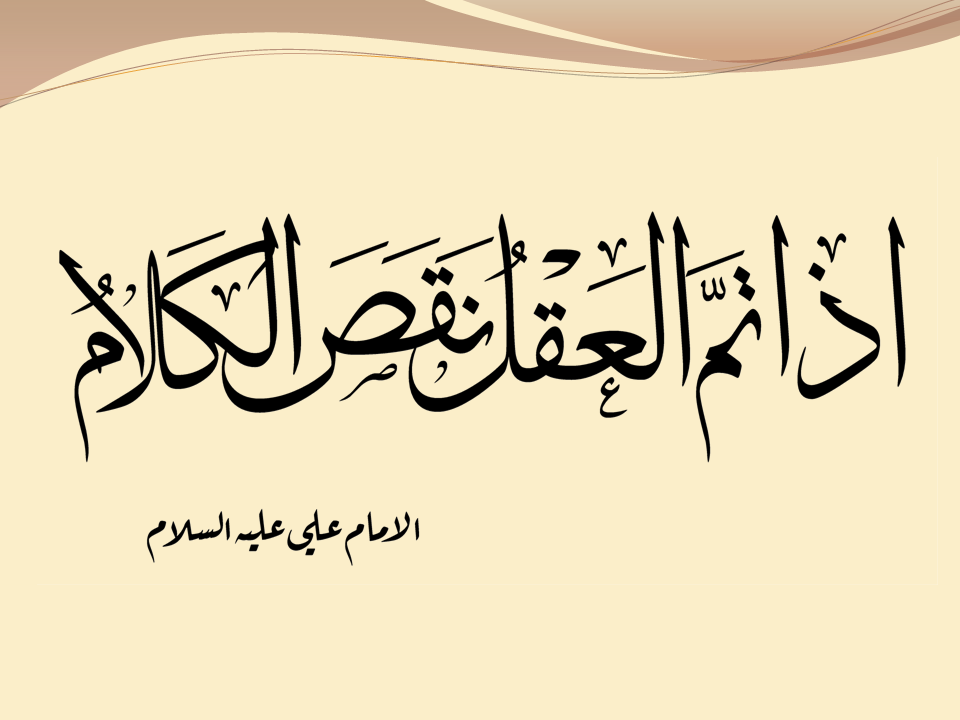 اذا تمَّ العَقْلُ نَقَصَ الكَلامُ
الامام علي عليه السلام